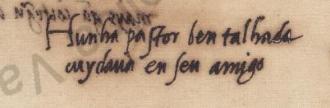 Hunha pastor ben talhada
cuydava en seu amigo